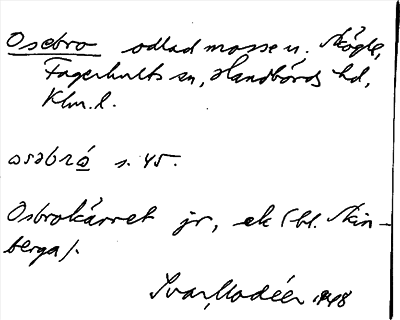 Osebro odlad mosse u. Skögle,
Fagerhults sn, Handbörds hd,
Klm. l.
osabrö s. 45.
Osbrokärret jr, ek (bl. Skin-
berga).
Ivar Modéer 1948